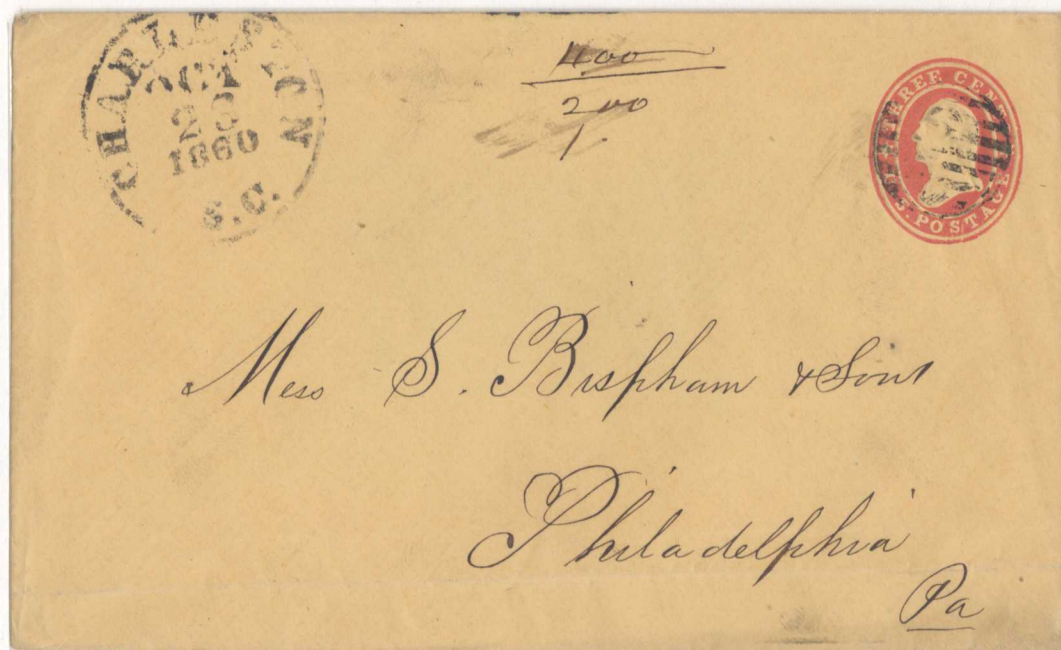 CHARLESTON
OCT
23
1860
S.C.
400
2 00
1.
THREE CENTS
U.S. POSTAGE
Mess S. Bispham & Sons
Philadelphia
Pa